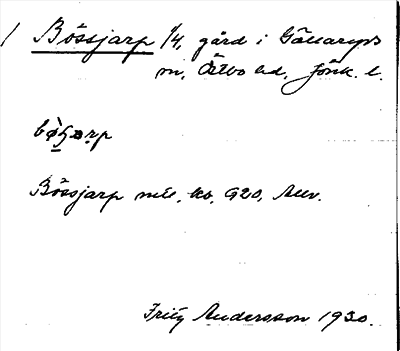 / Bössjarp 1/4, gård i Gällaryds
sn, Östbo hd, Jönk. l.
Bössjarp mtl, kb, G20, Auv.
Fritz Andersson 1930.